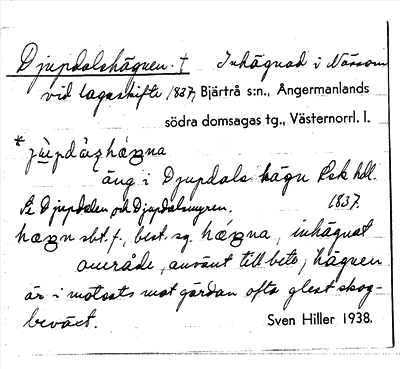 Djupdalshägnen. † Inhägnad i Nässom
vid lagaskifte 1837, Bjärtrå s:n., Ångermanlands
södra domsagas tg., Västernorrl. l.
äng i Djupdals hägn Lsk hdl.
Se Djupdalen och Djupdalsmyren. 1837.
sbt. f., best. sg. inhägnat
område, använt till bete; hägnen
är i motsats mot gärdan ofta glest skog-
beväxt. Sven Hiller 1938.